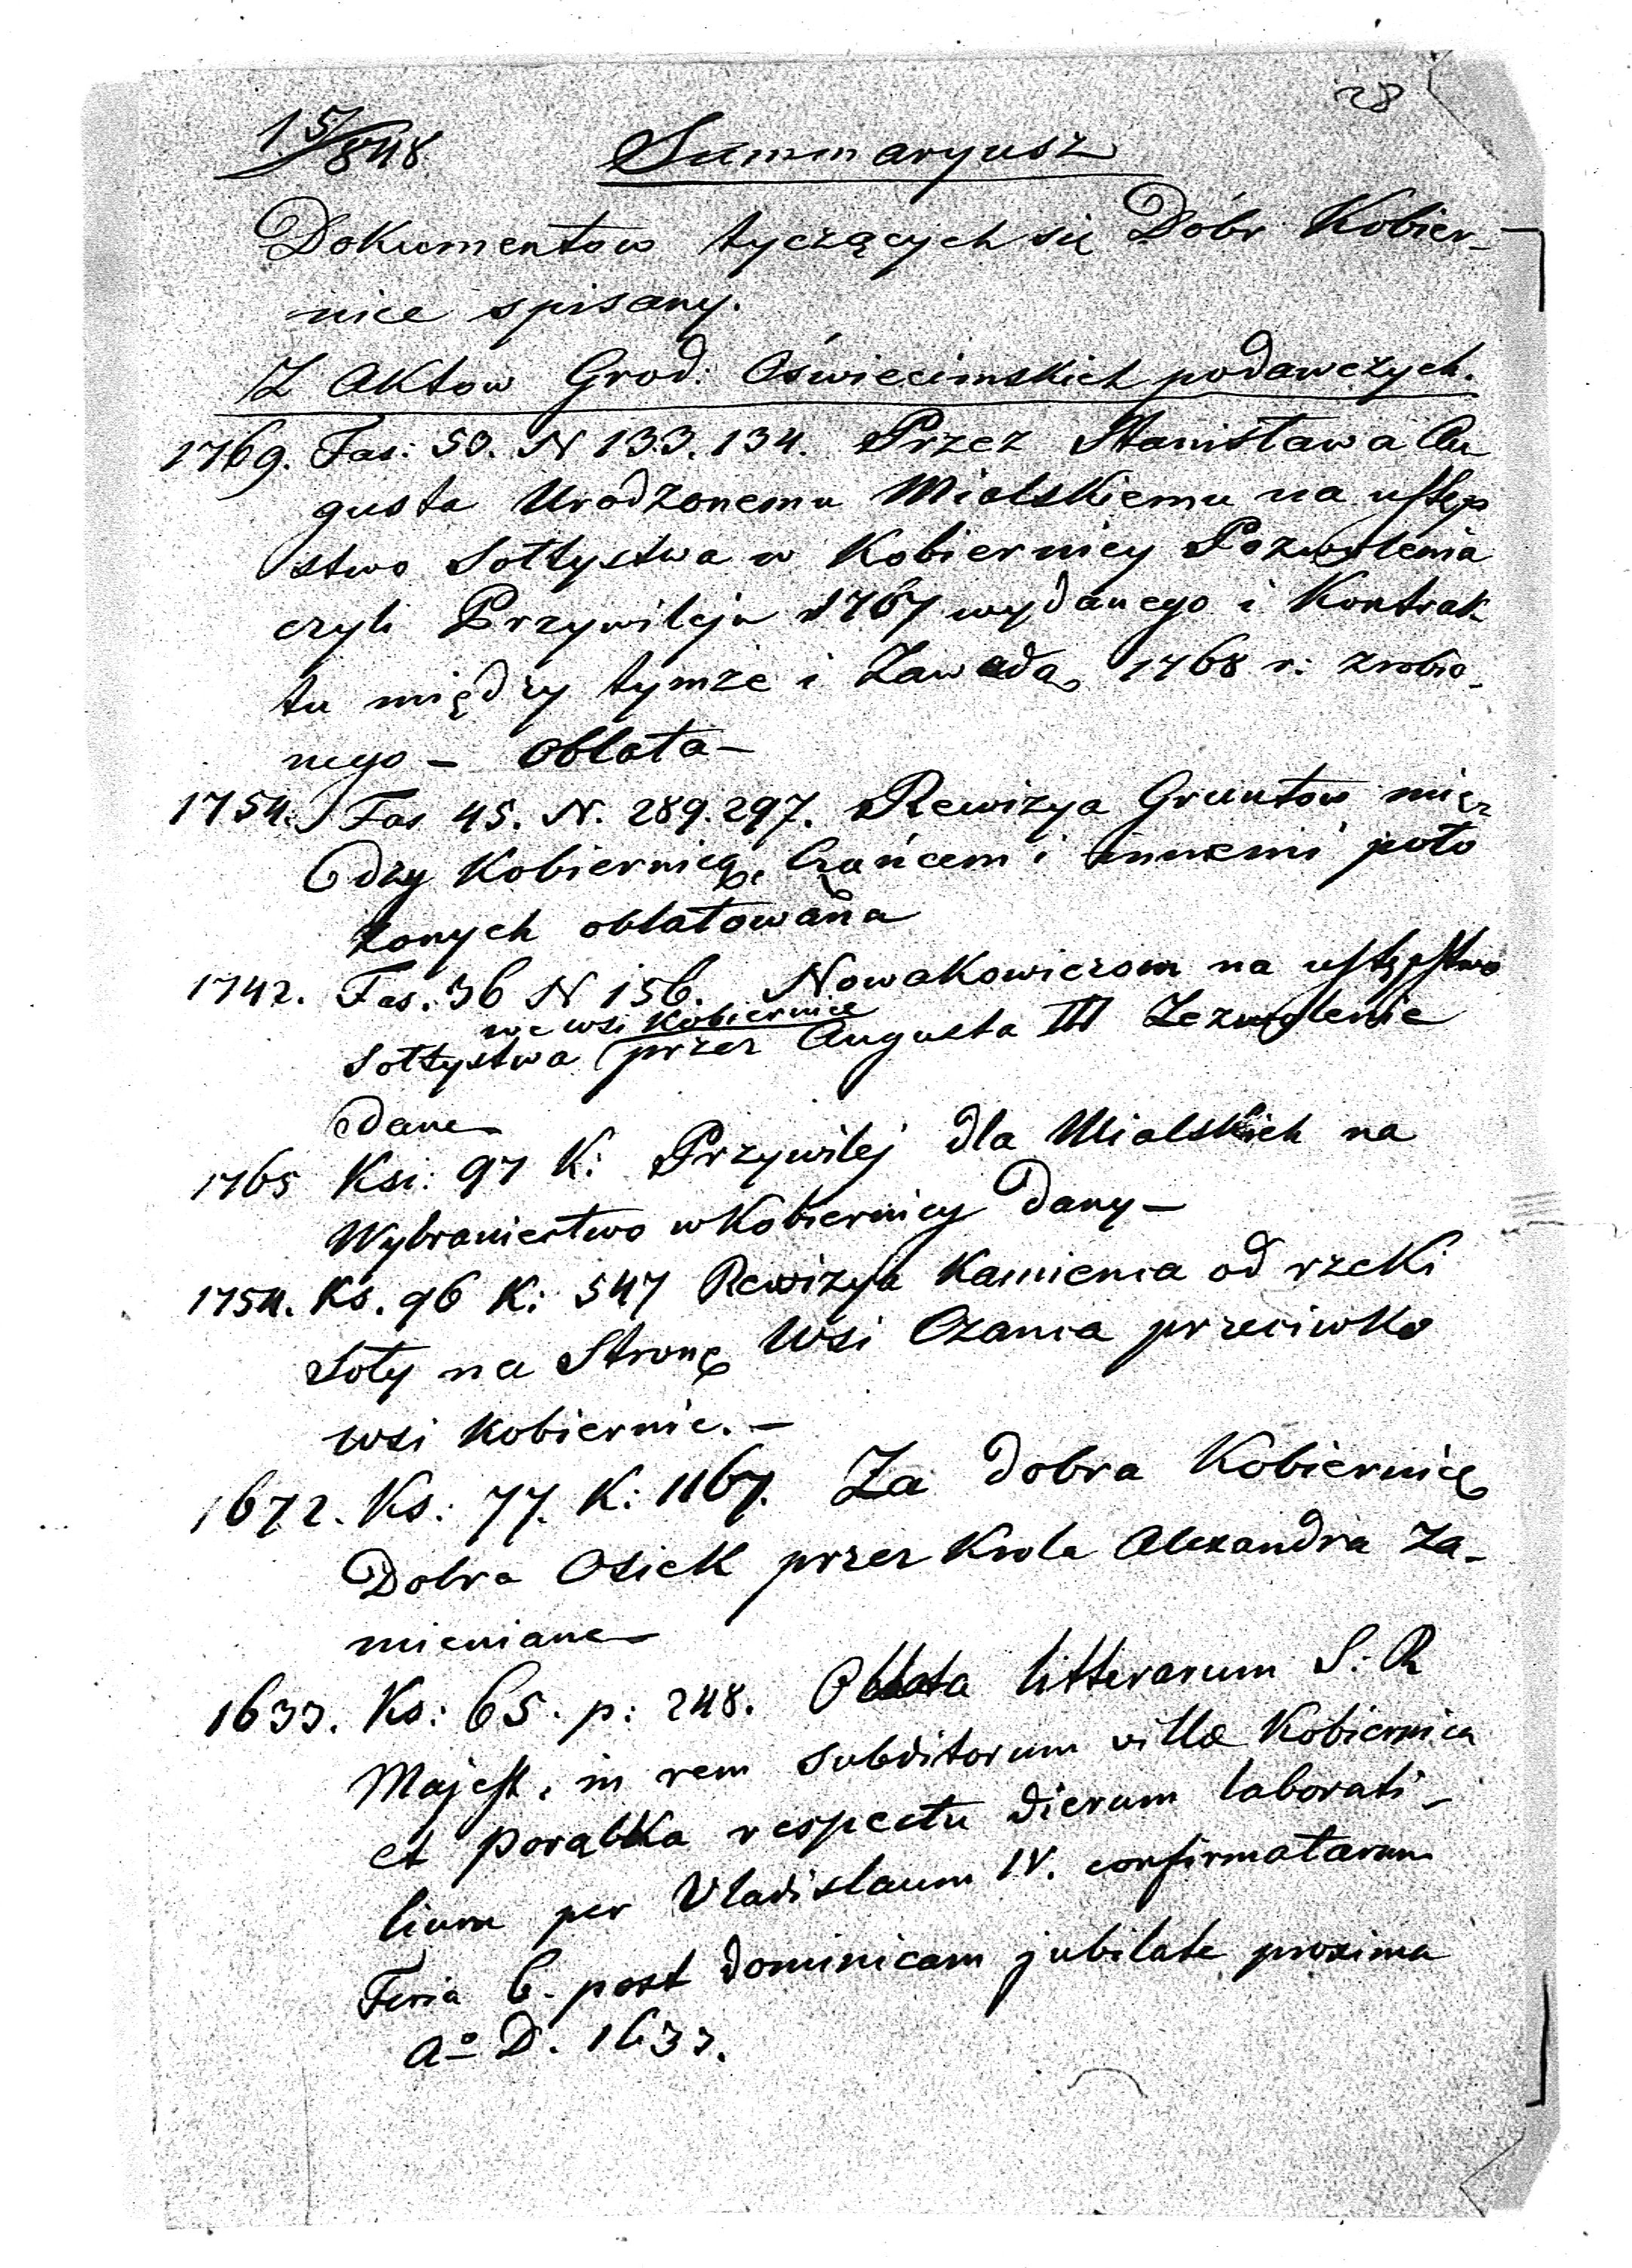 28
15/848. Summaryusz
Dokumentow tyczących się Dóbr Kobier-
nice spisany.
Z Aktow Grod: Oświecimskich podawczych.
1769. Fas: 50. N 133. 134. Przez Stanisława Au
gusta Urodzonemu Mialskiemu na ustęp
stwo Sołtystwa w Kobiernicy Pozwolenia
czyli Przywileju 1767 wydanego i Kontrak
tu między tymże i Zawadą 1768 r: zrobio-
nego – Oblata –
1754. Fas 45. N. 289. 297. Rewizya Gruntow mię
dzy Kobiernicą, Czańcem i innemi poło
żonych oblatowana
1742. Fas. 36 N 156. Nowakowiczom na ustępstwo
we wsi Kobiernice
Sołtystwa przez Augusta III Zezwolenie
dane
1765 Ksi: 97 K: Przywilej dla Mialskich na
Wybraniectwo w Kobiernicy dany –
1754. Ks. 96 K: 547 Rewizya Kamienca od rzeki
Soły na Stronę Wsi Czanca przeciwko
wsi Kobiernic. –
1672. Ks: 77. K: 1167. Za dobra Kobiernicę
Dobra Osiek przez Krola Alexandra Za-
mieniane
1633. Ks: 65. p: 248. Oblata litterarum S: R
Majest. in rem subditorum villæ Kobiernica
et Porąbka respectu dierum laborati-
lium per Vladislaum IV. confirmatarum
Feria 6. post dominicam jubilate proxima
Aº D. 1633.